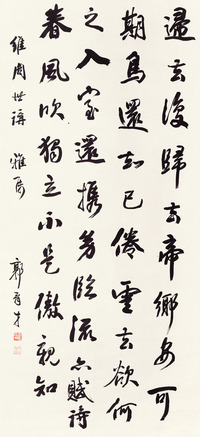 歸去復歸去帝鄉安可
期鳥還知已倦雲去欲何
之入室還攜幼臨流亦賦詩
春風吹獨立不是傲親知
維周世講 雅屬
郭